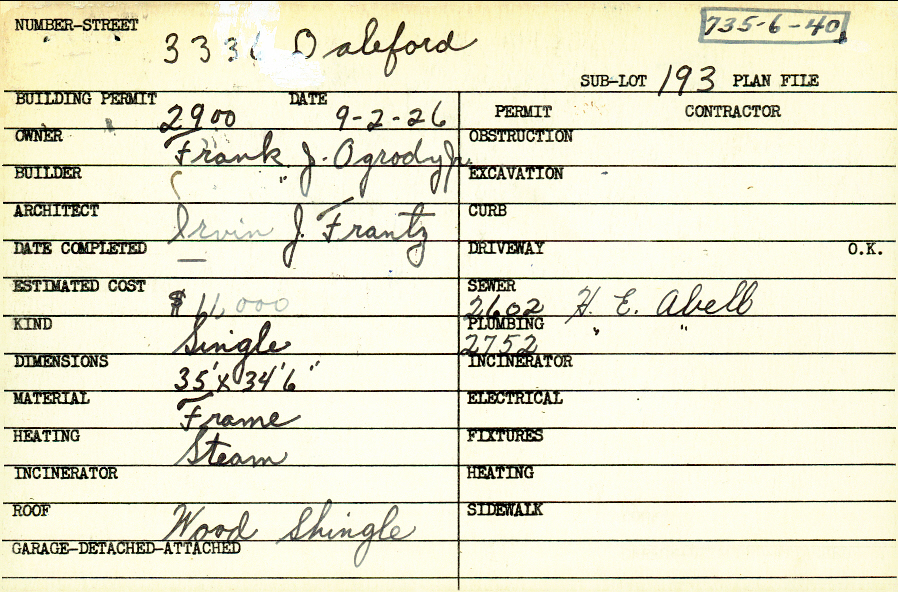 NUMBER-STREET 3336 Daleford
735-6-40
SUB-LOT 193 PLAN FILE
BUILDING PERMIT 2900 DATE 9-2-26
OWNER Frank J. Ogrody Jr.
BUILDER "
ARCHITECT Irvin J. Frantz
DATE COMPLETED —
ESTIMATED COST $11,000
KIND Single
DIMENSIONS 35' x 34'6"
MATERIAL Frame
HEATING Steam
INCINERATOR
ROOF Wood Shingle
GARAGE-DETACHED-ATTACHED
PERMIT CONTRACTOR
OBSTRUCTION
EXCAVATION
CURB
DRIVEWAY O.K.
SEWER 2602 H. E. Abell
PLUMBING 2752 " "
INCINERATOR
ELECTRICAL
FIXTURES
HEATING
SIDEWALK